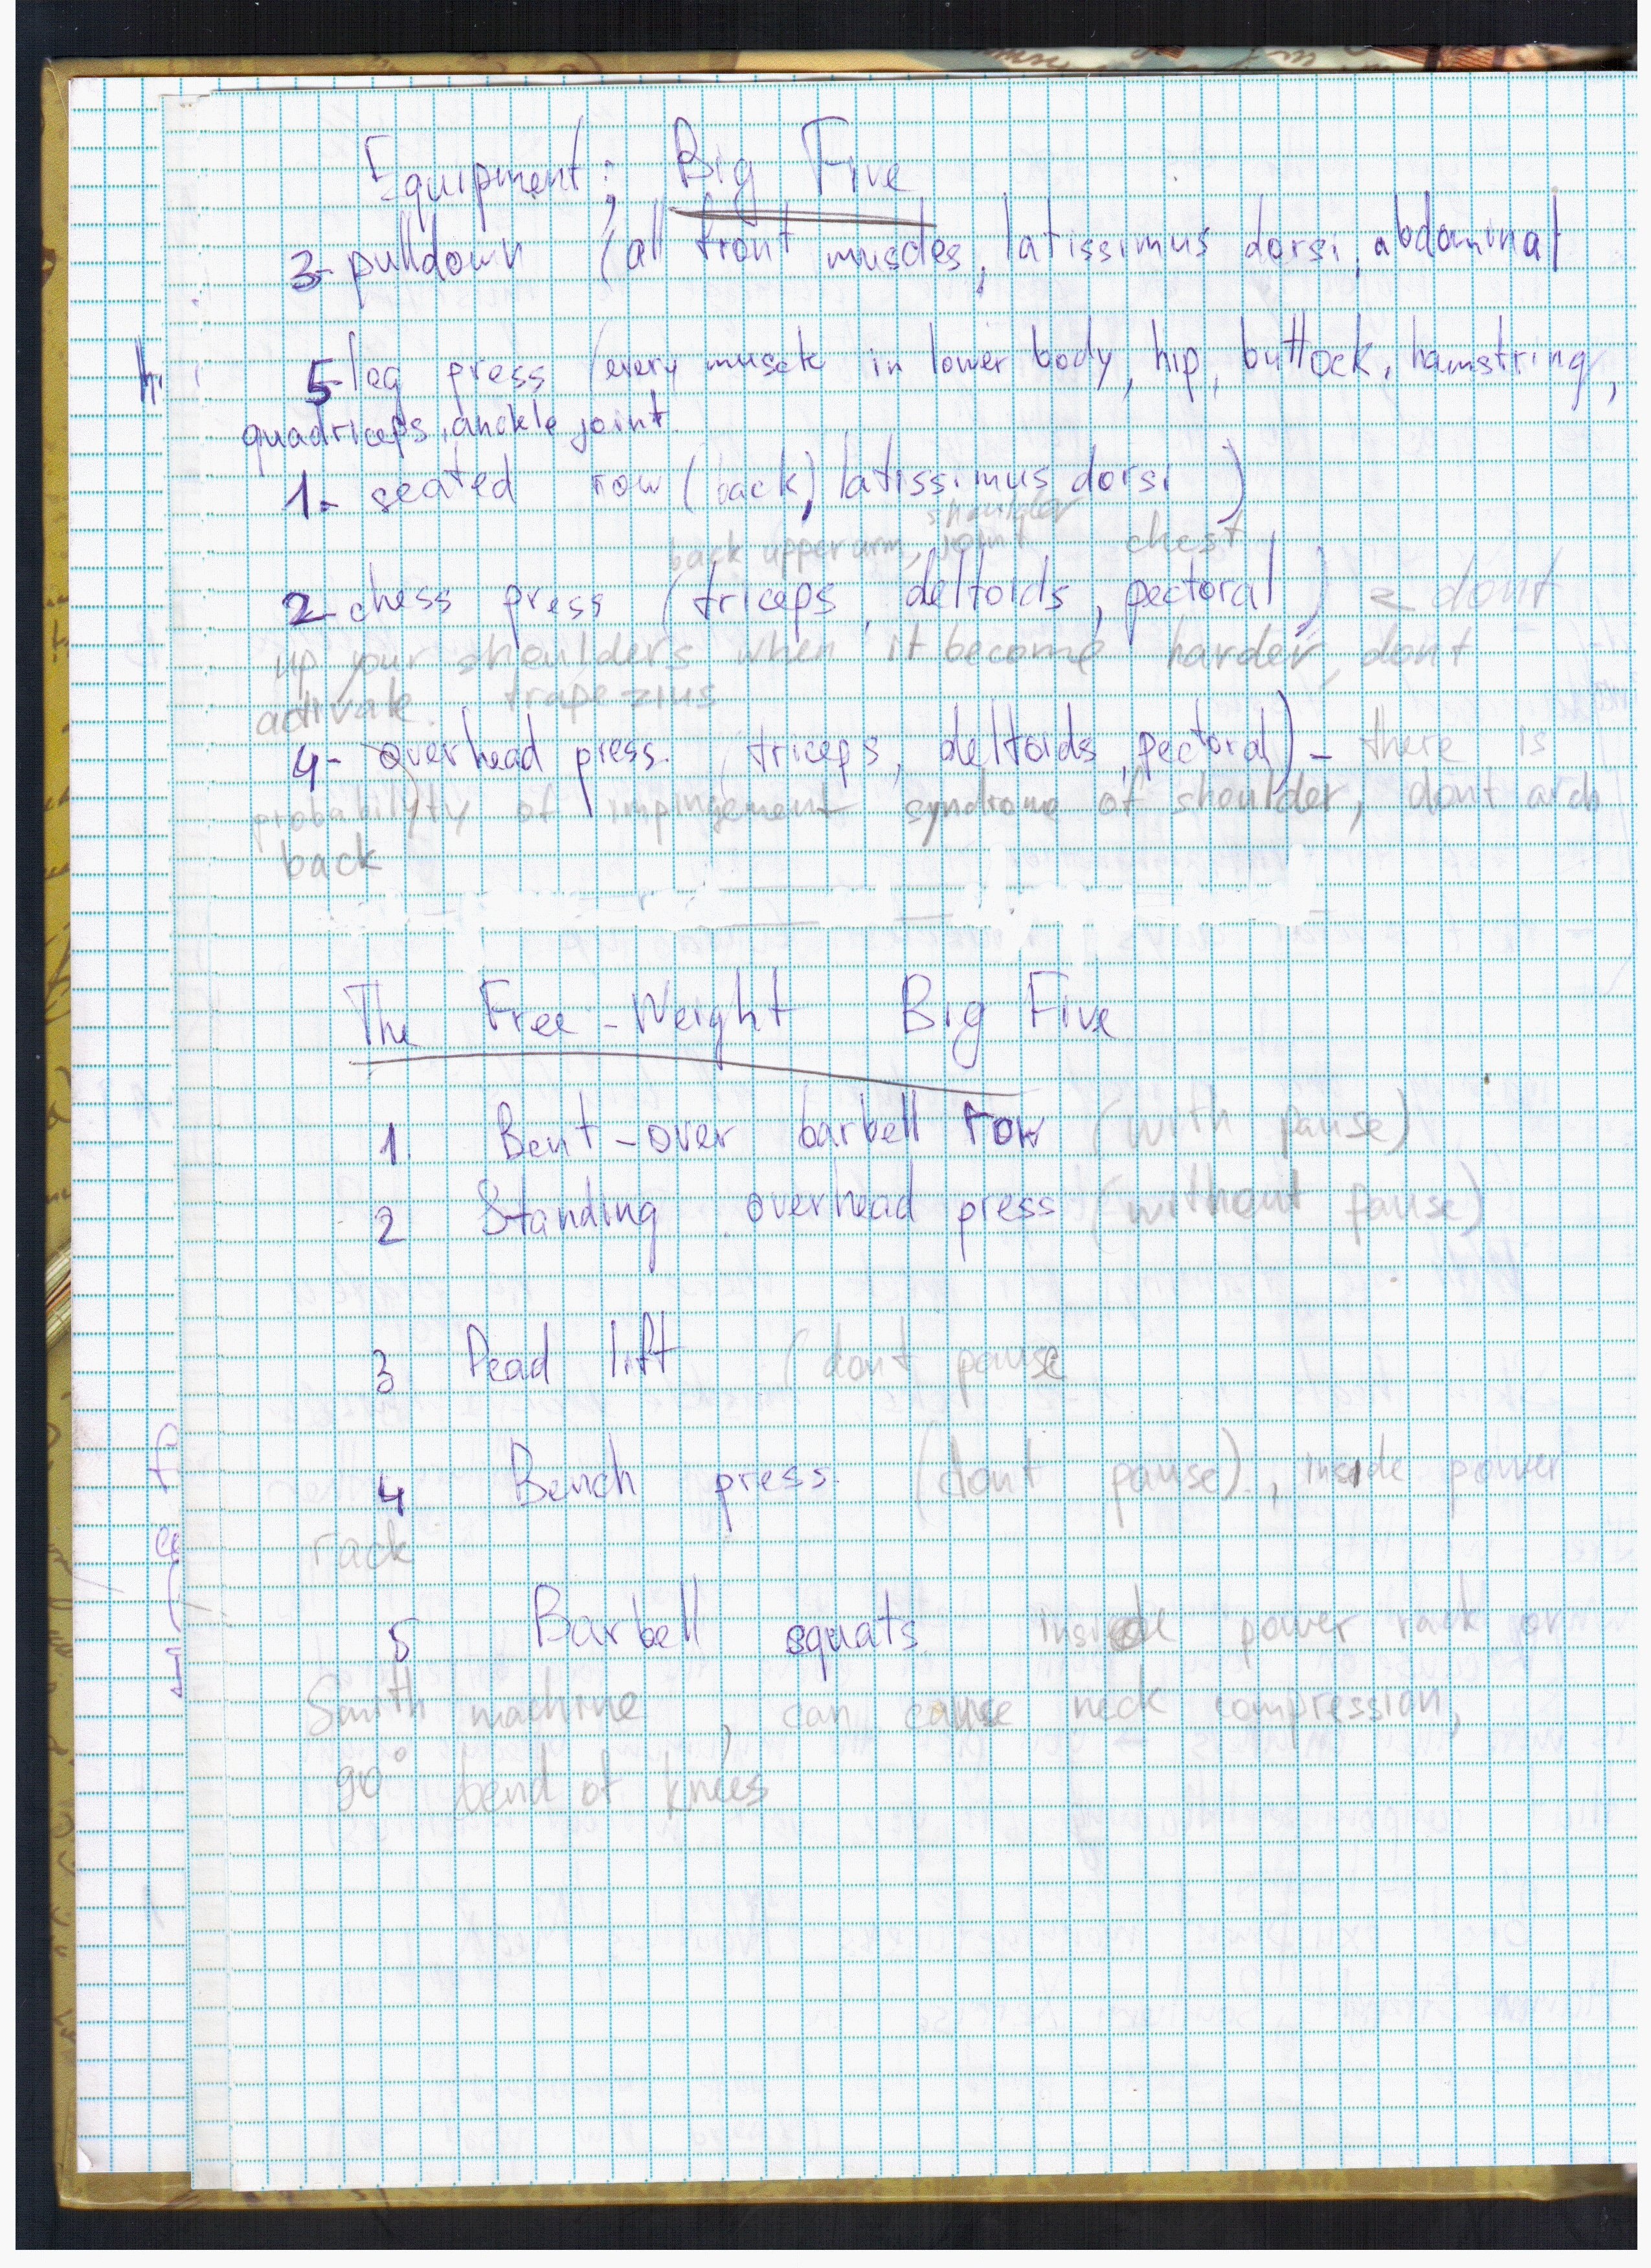 Equipment: Big Five
3- pulldown (all front muscles, latissimus dorsi, abdominal
5- leg press (every muscle in lower body, hip, buttock, hamstring,
quadriceps, anckle joint.
1- seated row (back, latissimus dorsi)
shoulder
back upper arm, joint chest
2- chess press (triceps, deltoids, pectoral) - dont
up your shoulders when it become harder, dont
activate trapezius
4- overhead press. (triceps, deltoids, pectoral) - there is
probability of impingement syndrome of shoulder, dont arch
back
The Free-Weight Big Five
1. Bent-over barbell row (with pause)
2 Standing overhead press (without pause)
3 Dead lift (dont pause
4 Bench press. (dont pause), inside power
rack
5 Barbell squats inside power rack or
Smith machine, can cause neck compression,
90° bend of knees